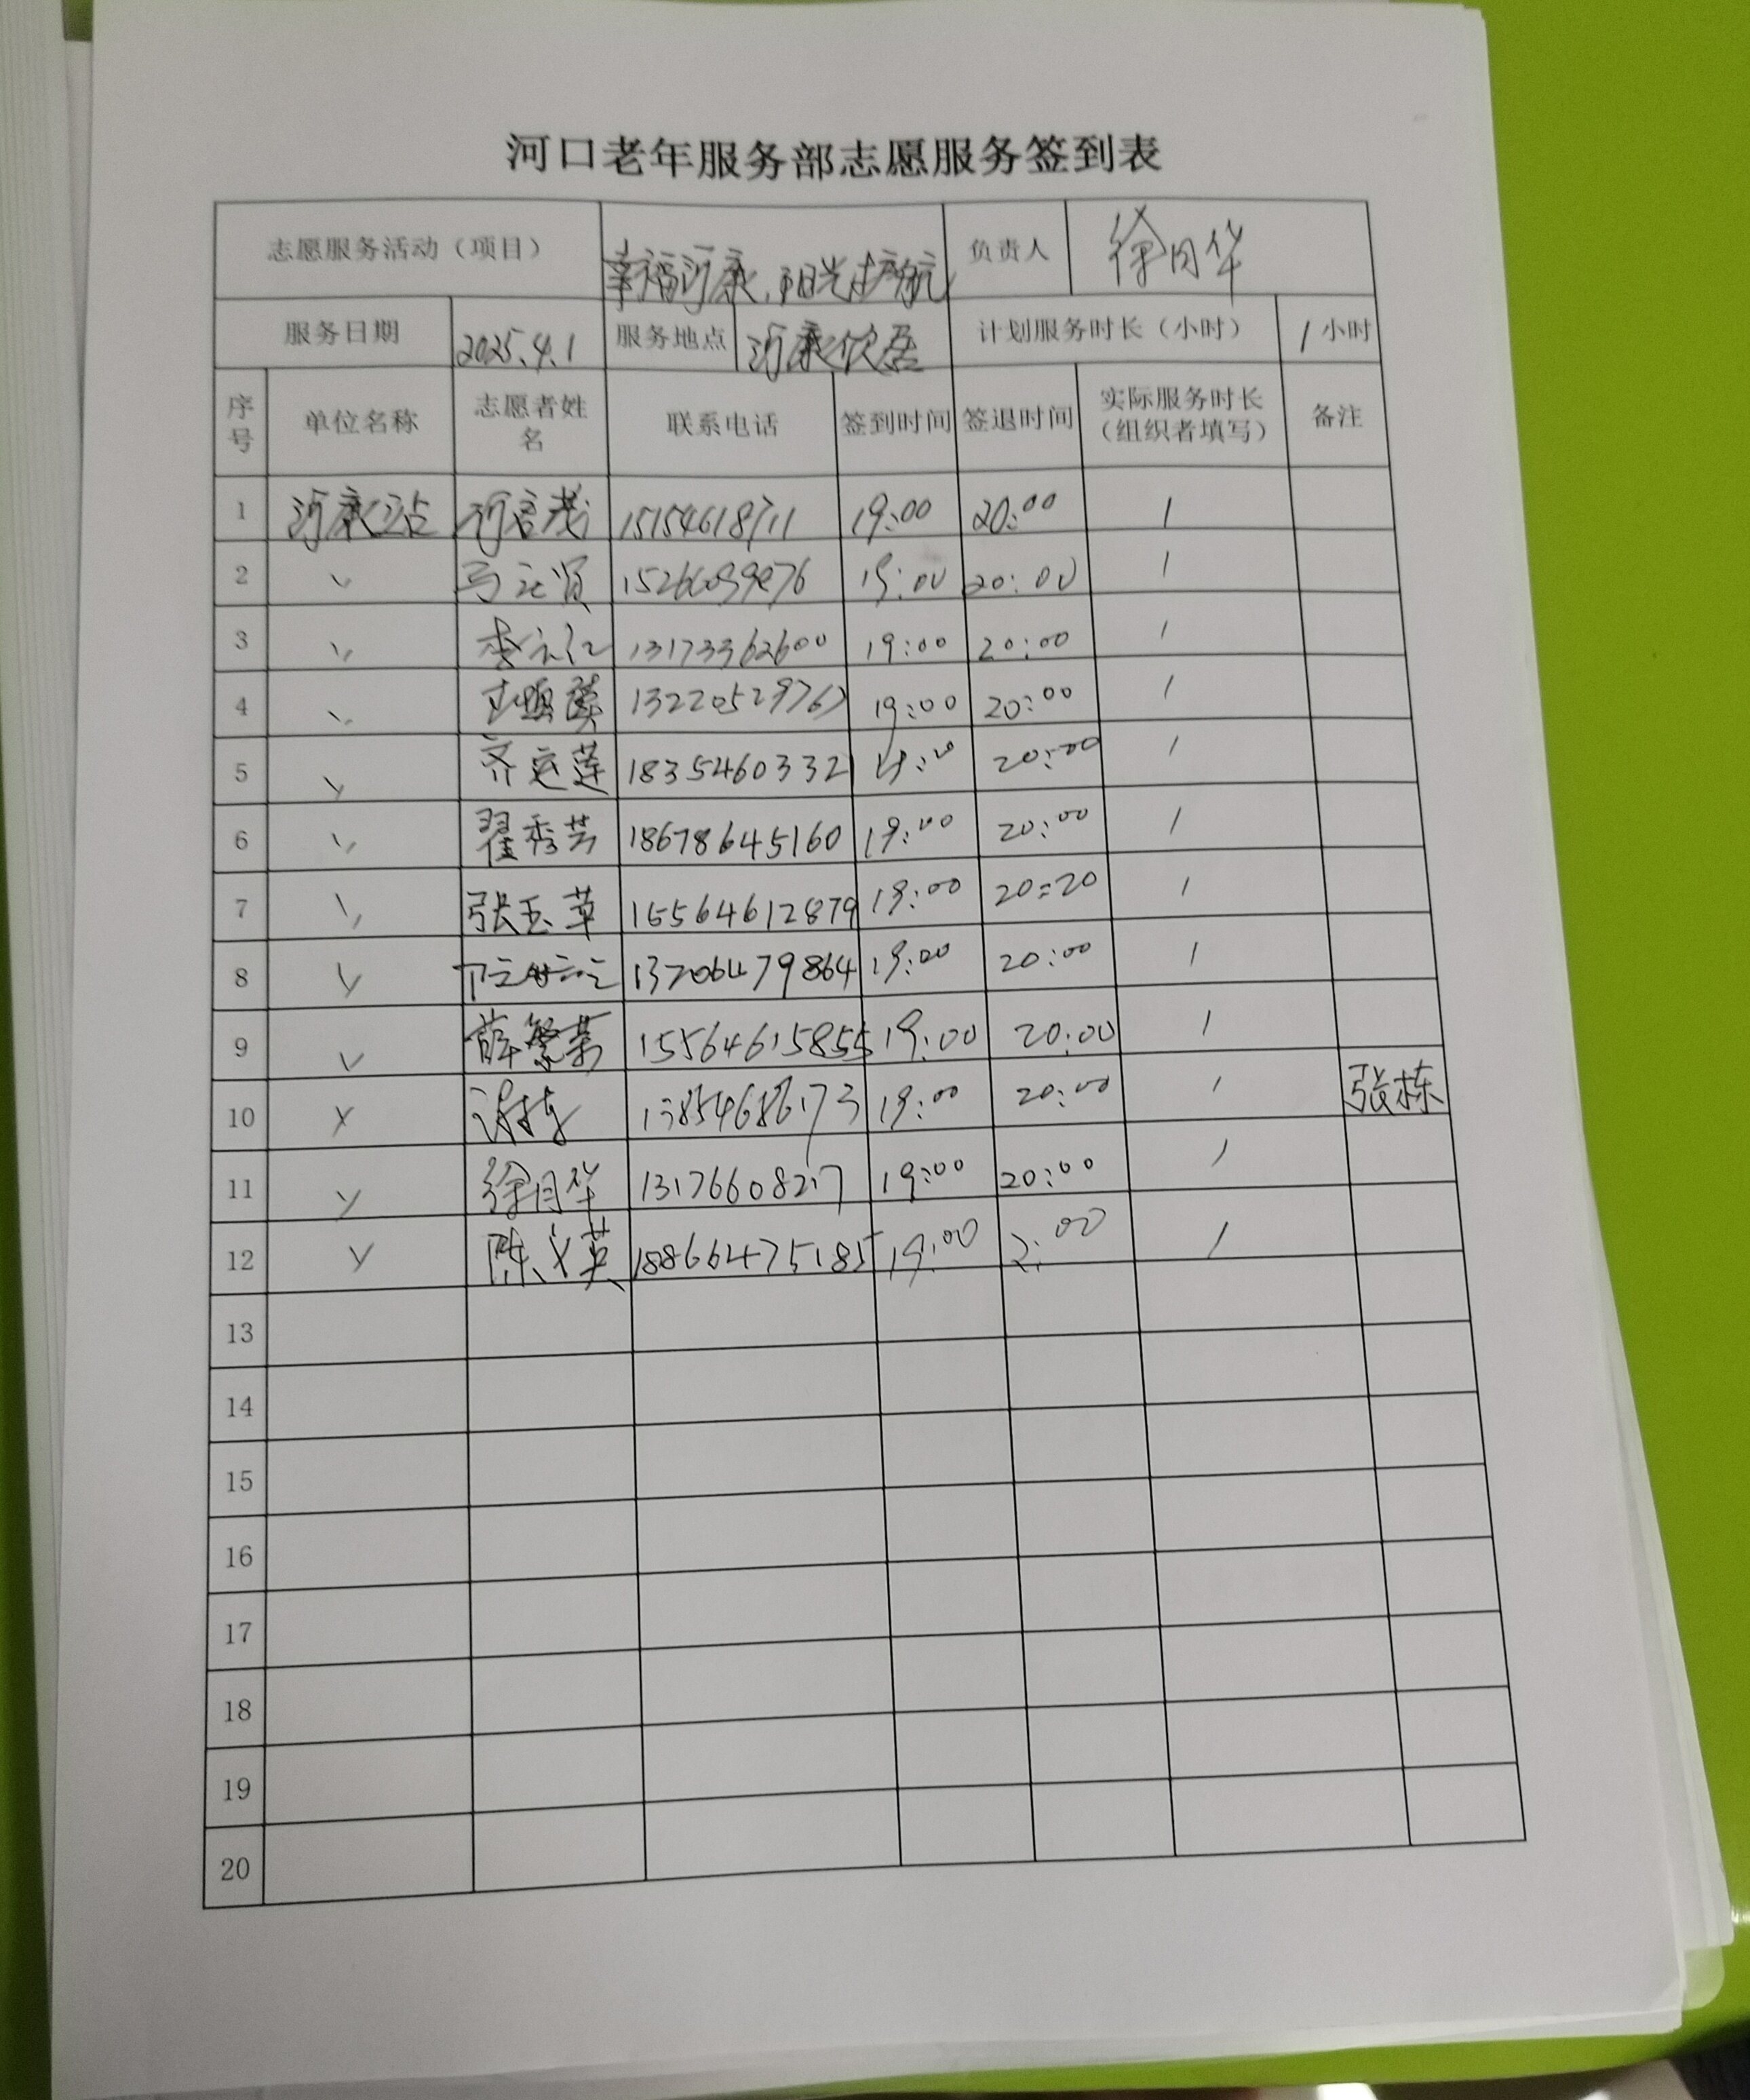 河口老年服务部志愿服务签到表
志愿服务活动（项目） 幸福河康，阳光护航 负责人 徐月华
服务日期 2025.4.1 服务地点 河康 计划服务时长（小时） 1小时
序号 单位名称 志愿者姓名 联系电话 签到时间 签退时间 实际服务时长（组织者填写） 备注
1 河康站 15154618711 19:00 20:00 1
2 〃 19:00 20:00 1
3 〃 13173362600 19:00 20:00 1
4 〃 19:00 20:00 1
5 〃 齐运莲 20:00 1
6 〃 翟秀芸 18678645160 19:00 20:00 1
7 〃 张玉草 15564612879 19:00 20:20 1
8 〃 13706479864 19:00 20:00 1
9 〃 薛繁荣 15564615855 19:00 20:00 1
10 〃 19:00 20:00 1 张栋
11 〃 徐月华 13176608217 19:00 20:00 1
12 〃 陈义英 18866475185 19:00 1
13
14
15
16
17
18
19
20